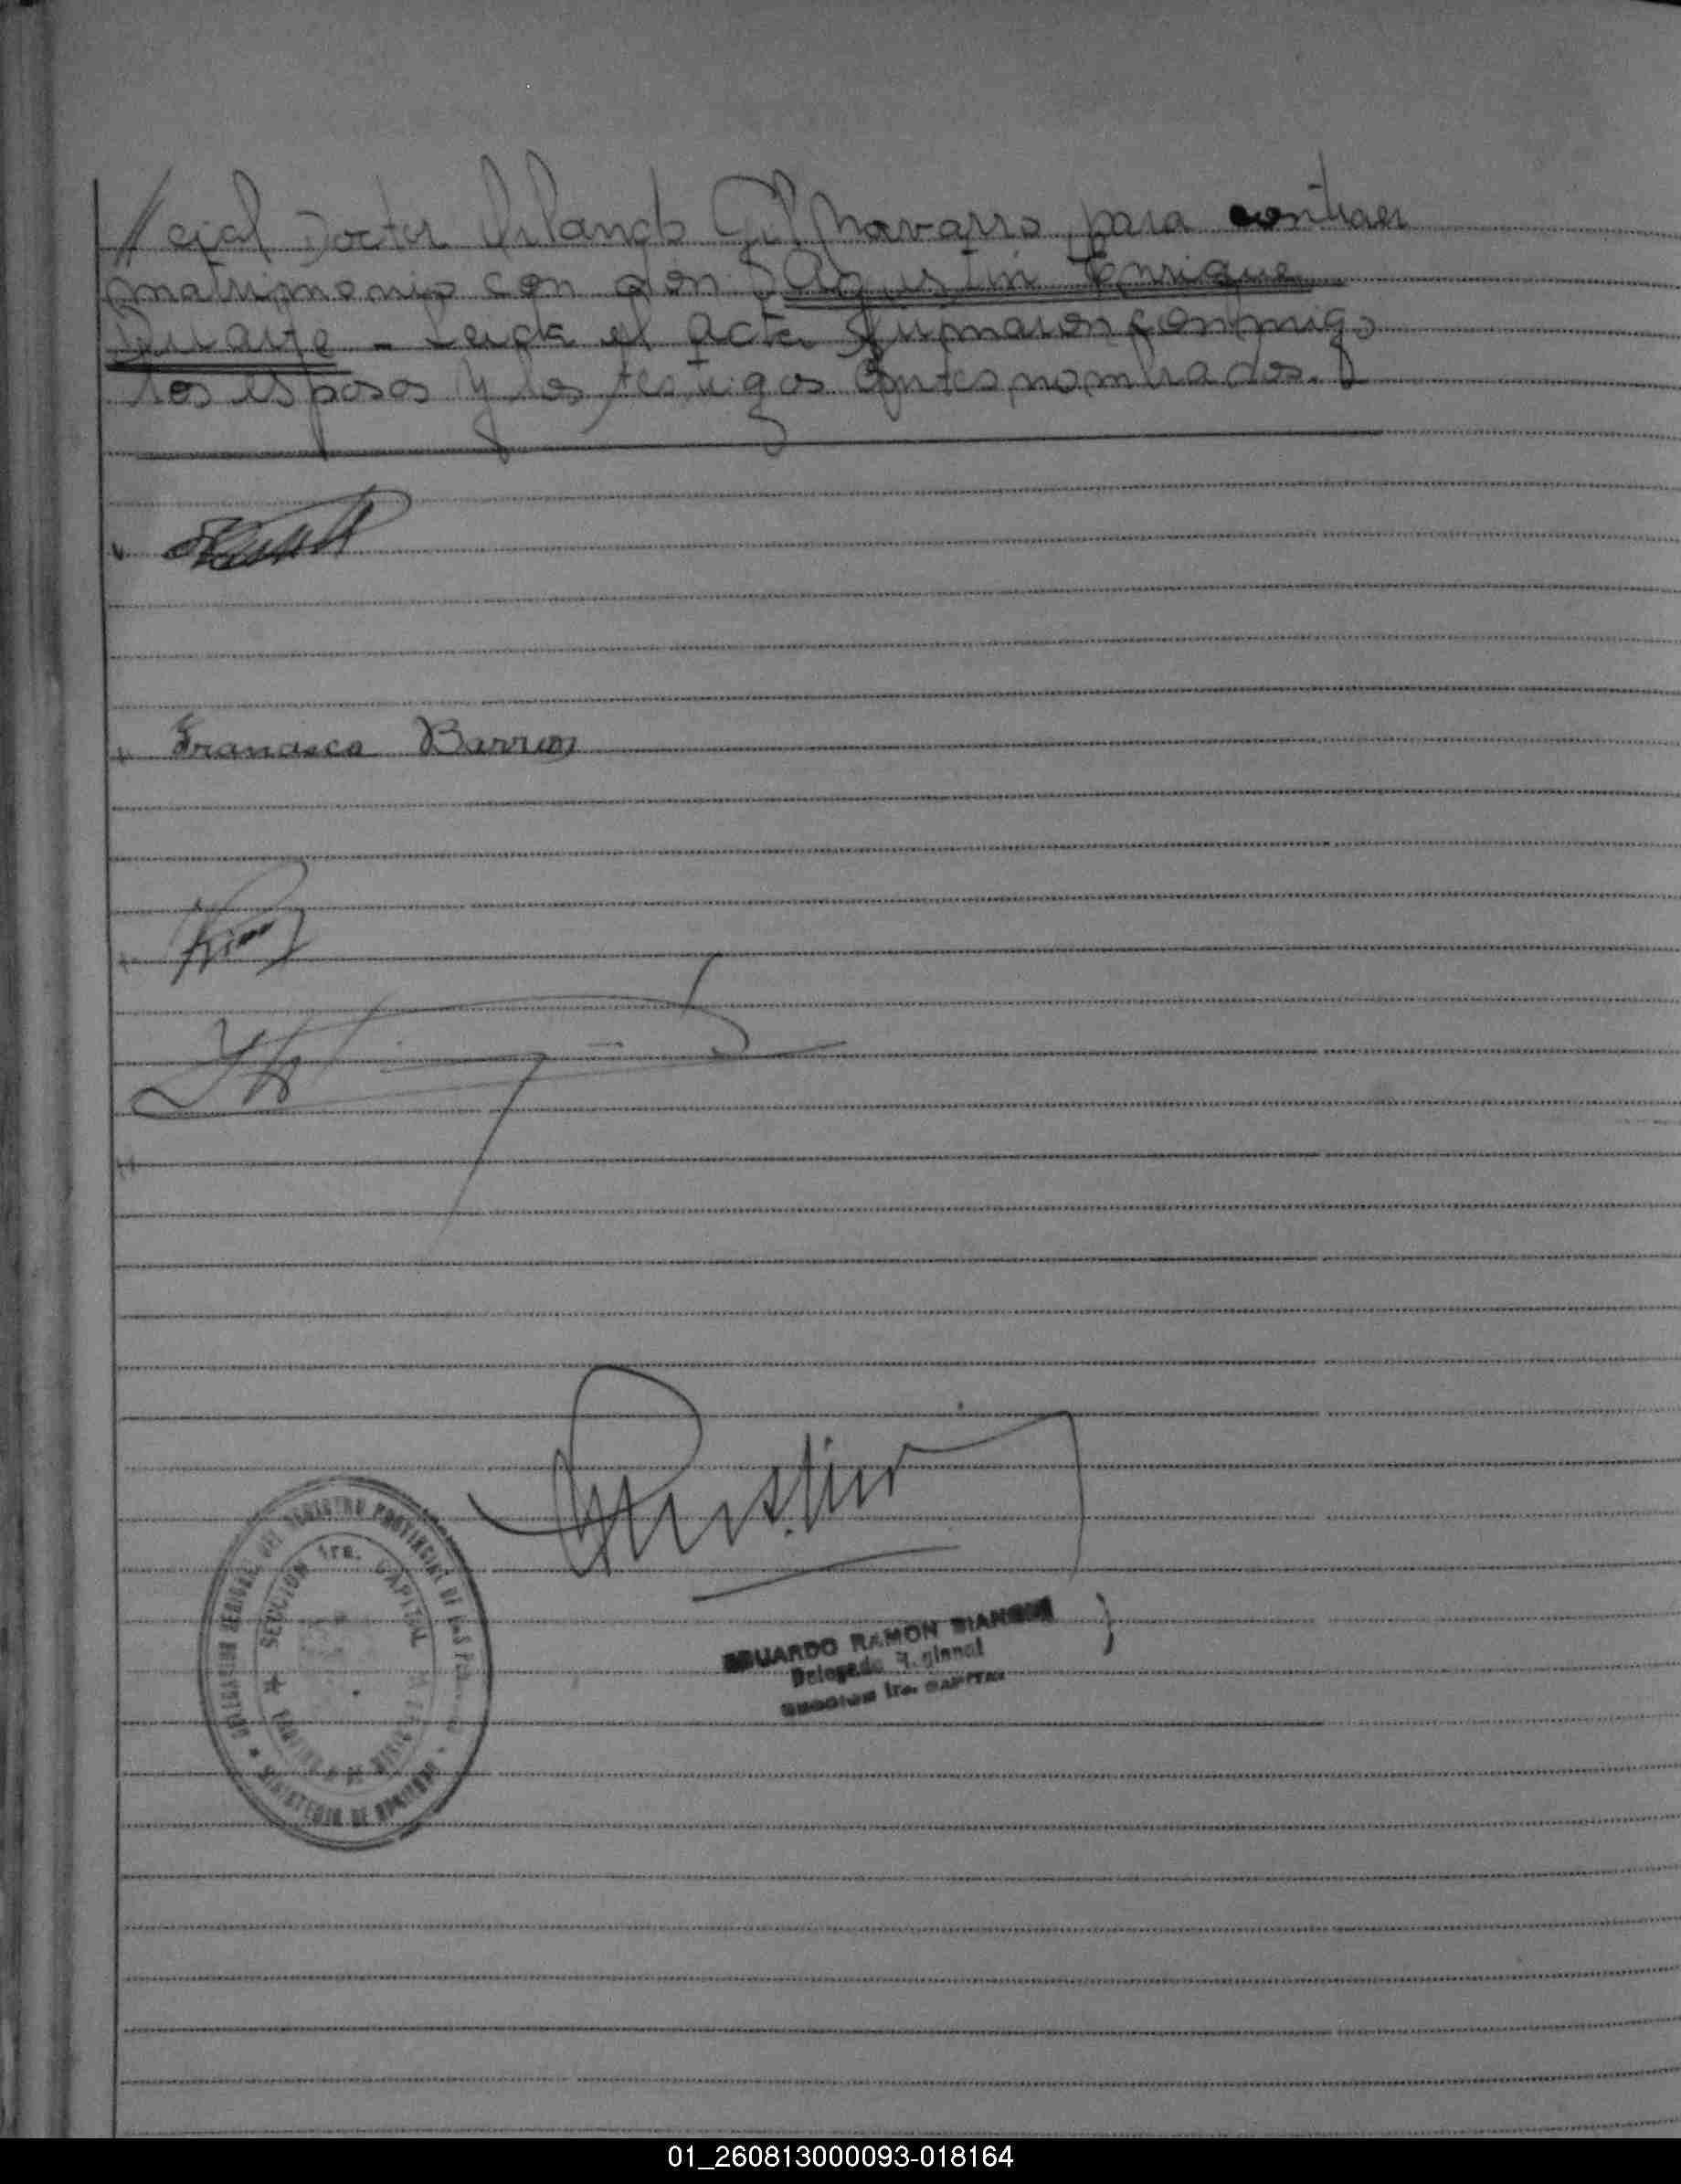 //cial Doctor Orlando Gil Navarro, para contraer
matrimonio con don Agustin Enrique
Duarte - Leida el acta firmaron conmigo
los esposos y los testigos antes nombrados.
Francisca Barrios
DELEGACION SECCIONAL DEL REGISTRO PROVINCIAL DE LAS PERSONAS
SECCION 1ra. CAPITAL
MINISTERIO DE GOBIERNO
EDUARDO RAMON BIANCHI
Delegado Regional
SECCION 1ra. CAPITAL
01_260813000093-018164